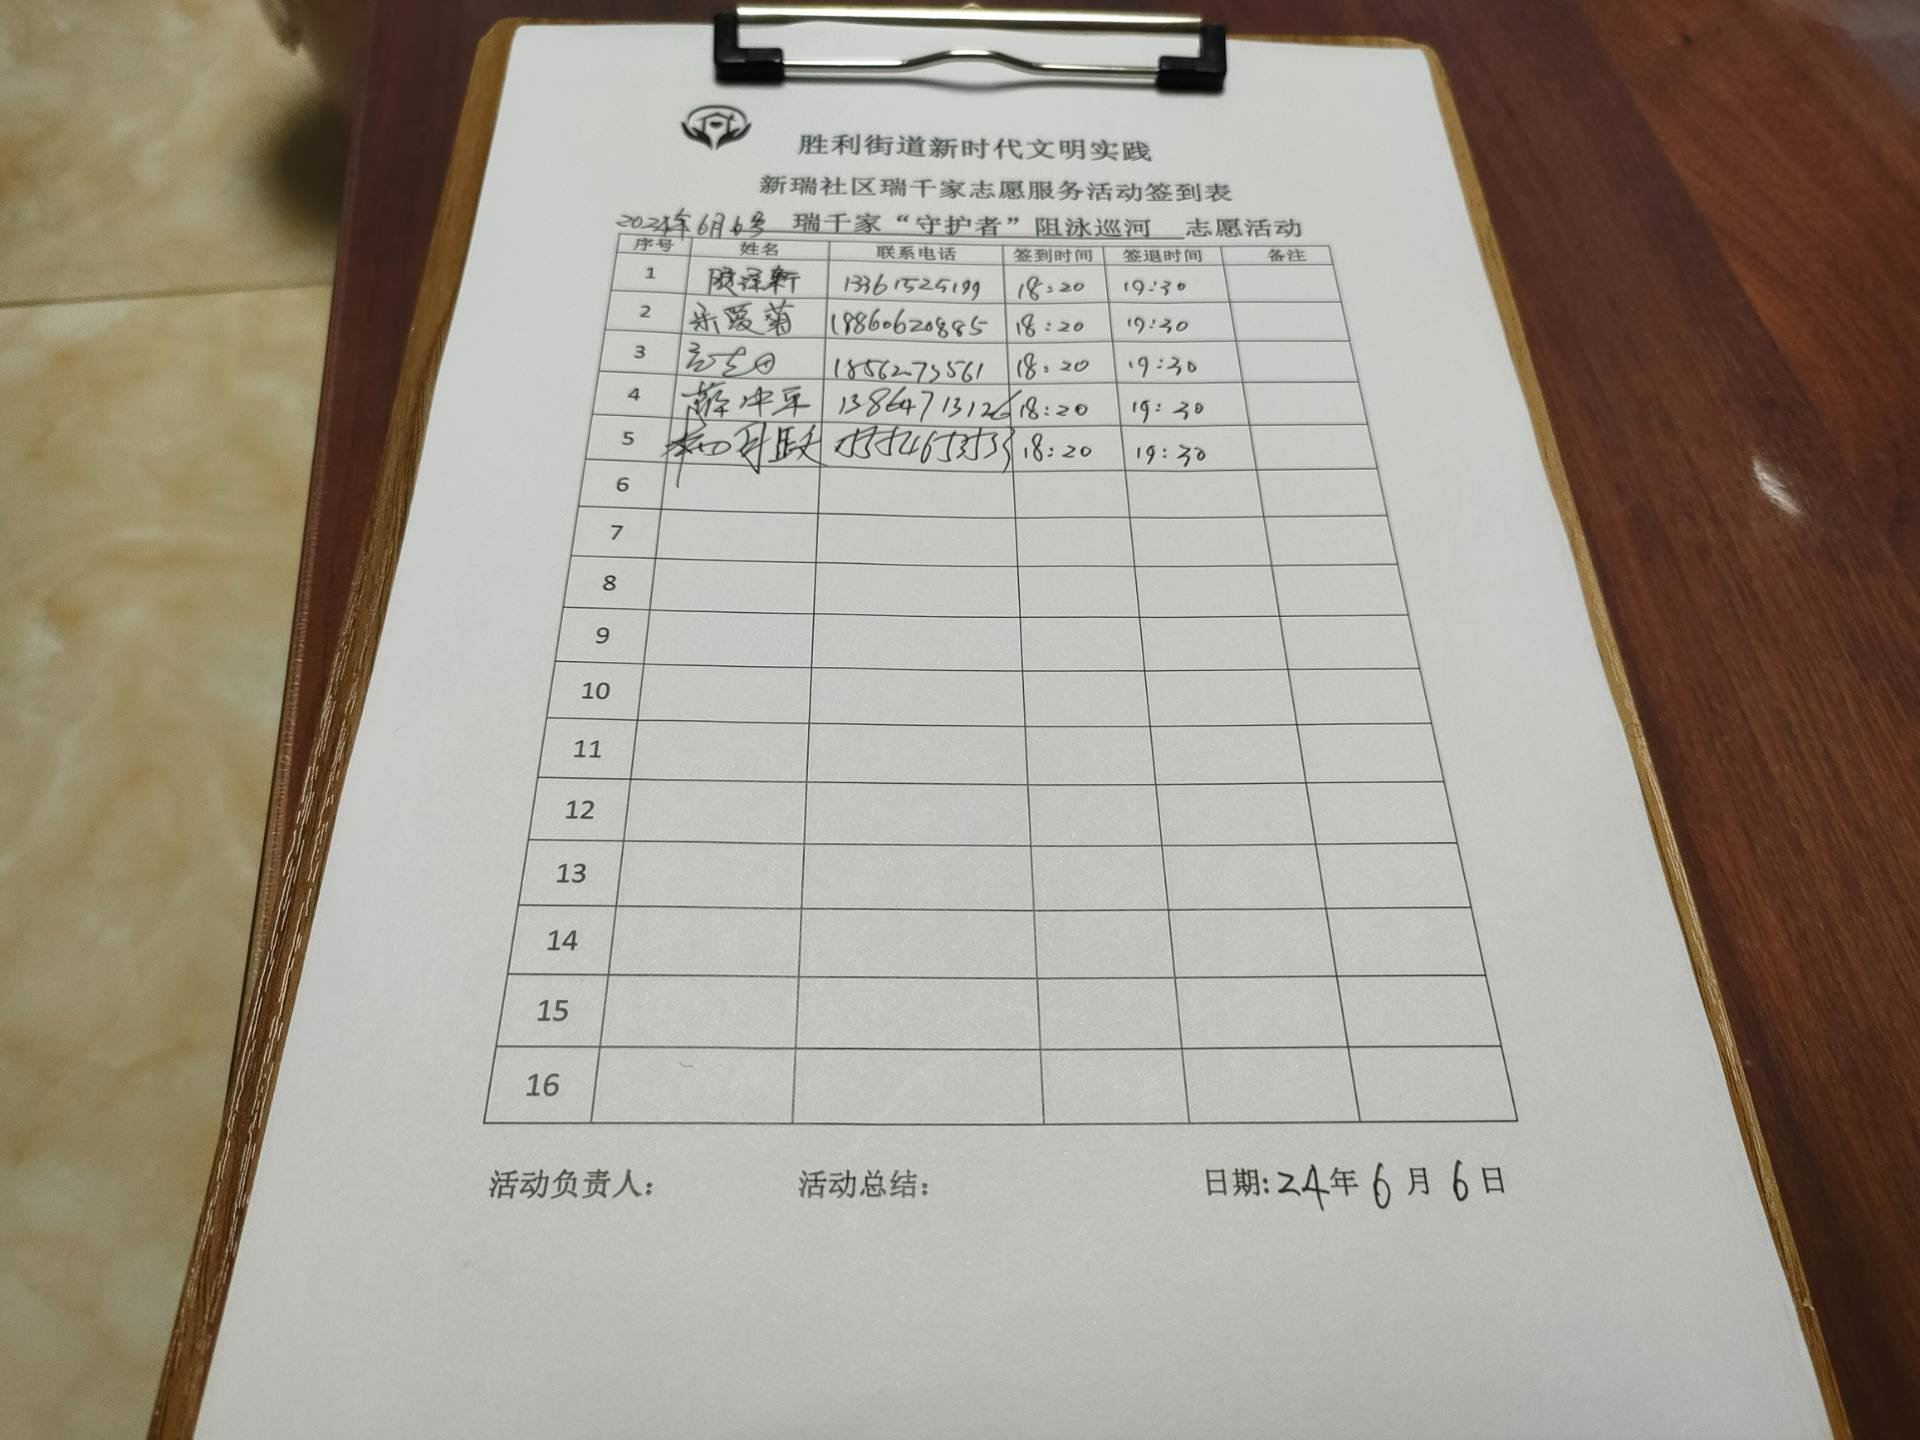 胜利街道新时代文明实践
新瑞社区瑞千家志愿服务活动签到表
2024年6月6号 瑞千家“守护者”阻泳巡河 志愿活动
序号 姓名 联系电话 签到时间 签退时间 备注
1 13361525199 18:20 19:30
2 18860620885 18:20 19:30
3 18:20 19:30
4 薛冲平 13864713126 18:20 19:30
5 18:20 19:30
6
7
8
9
10
11
12
13
14
15
16
活动负责人: 活动总结: 日期:24年6月6日